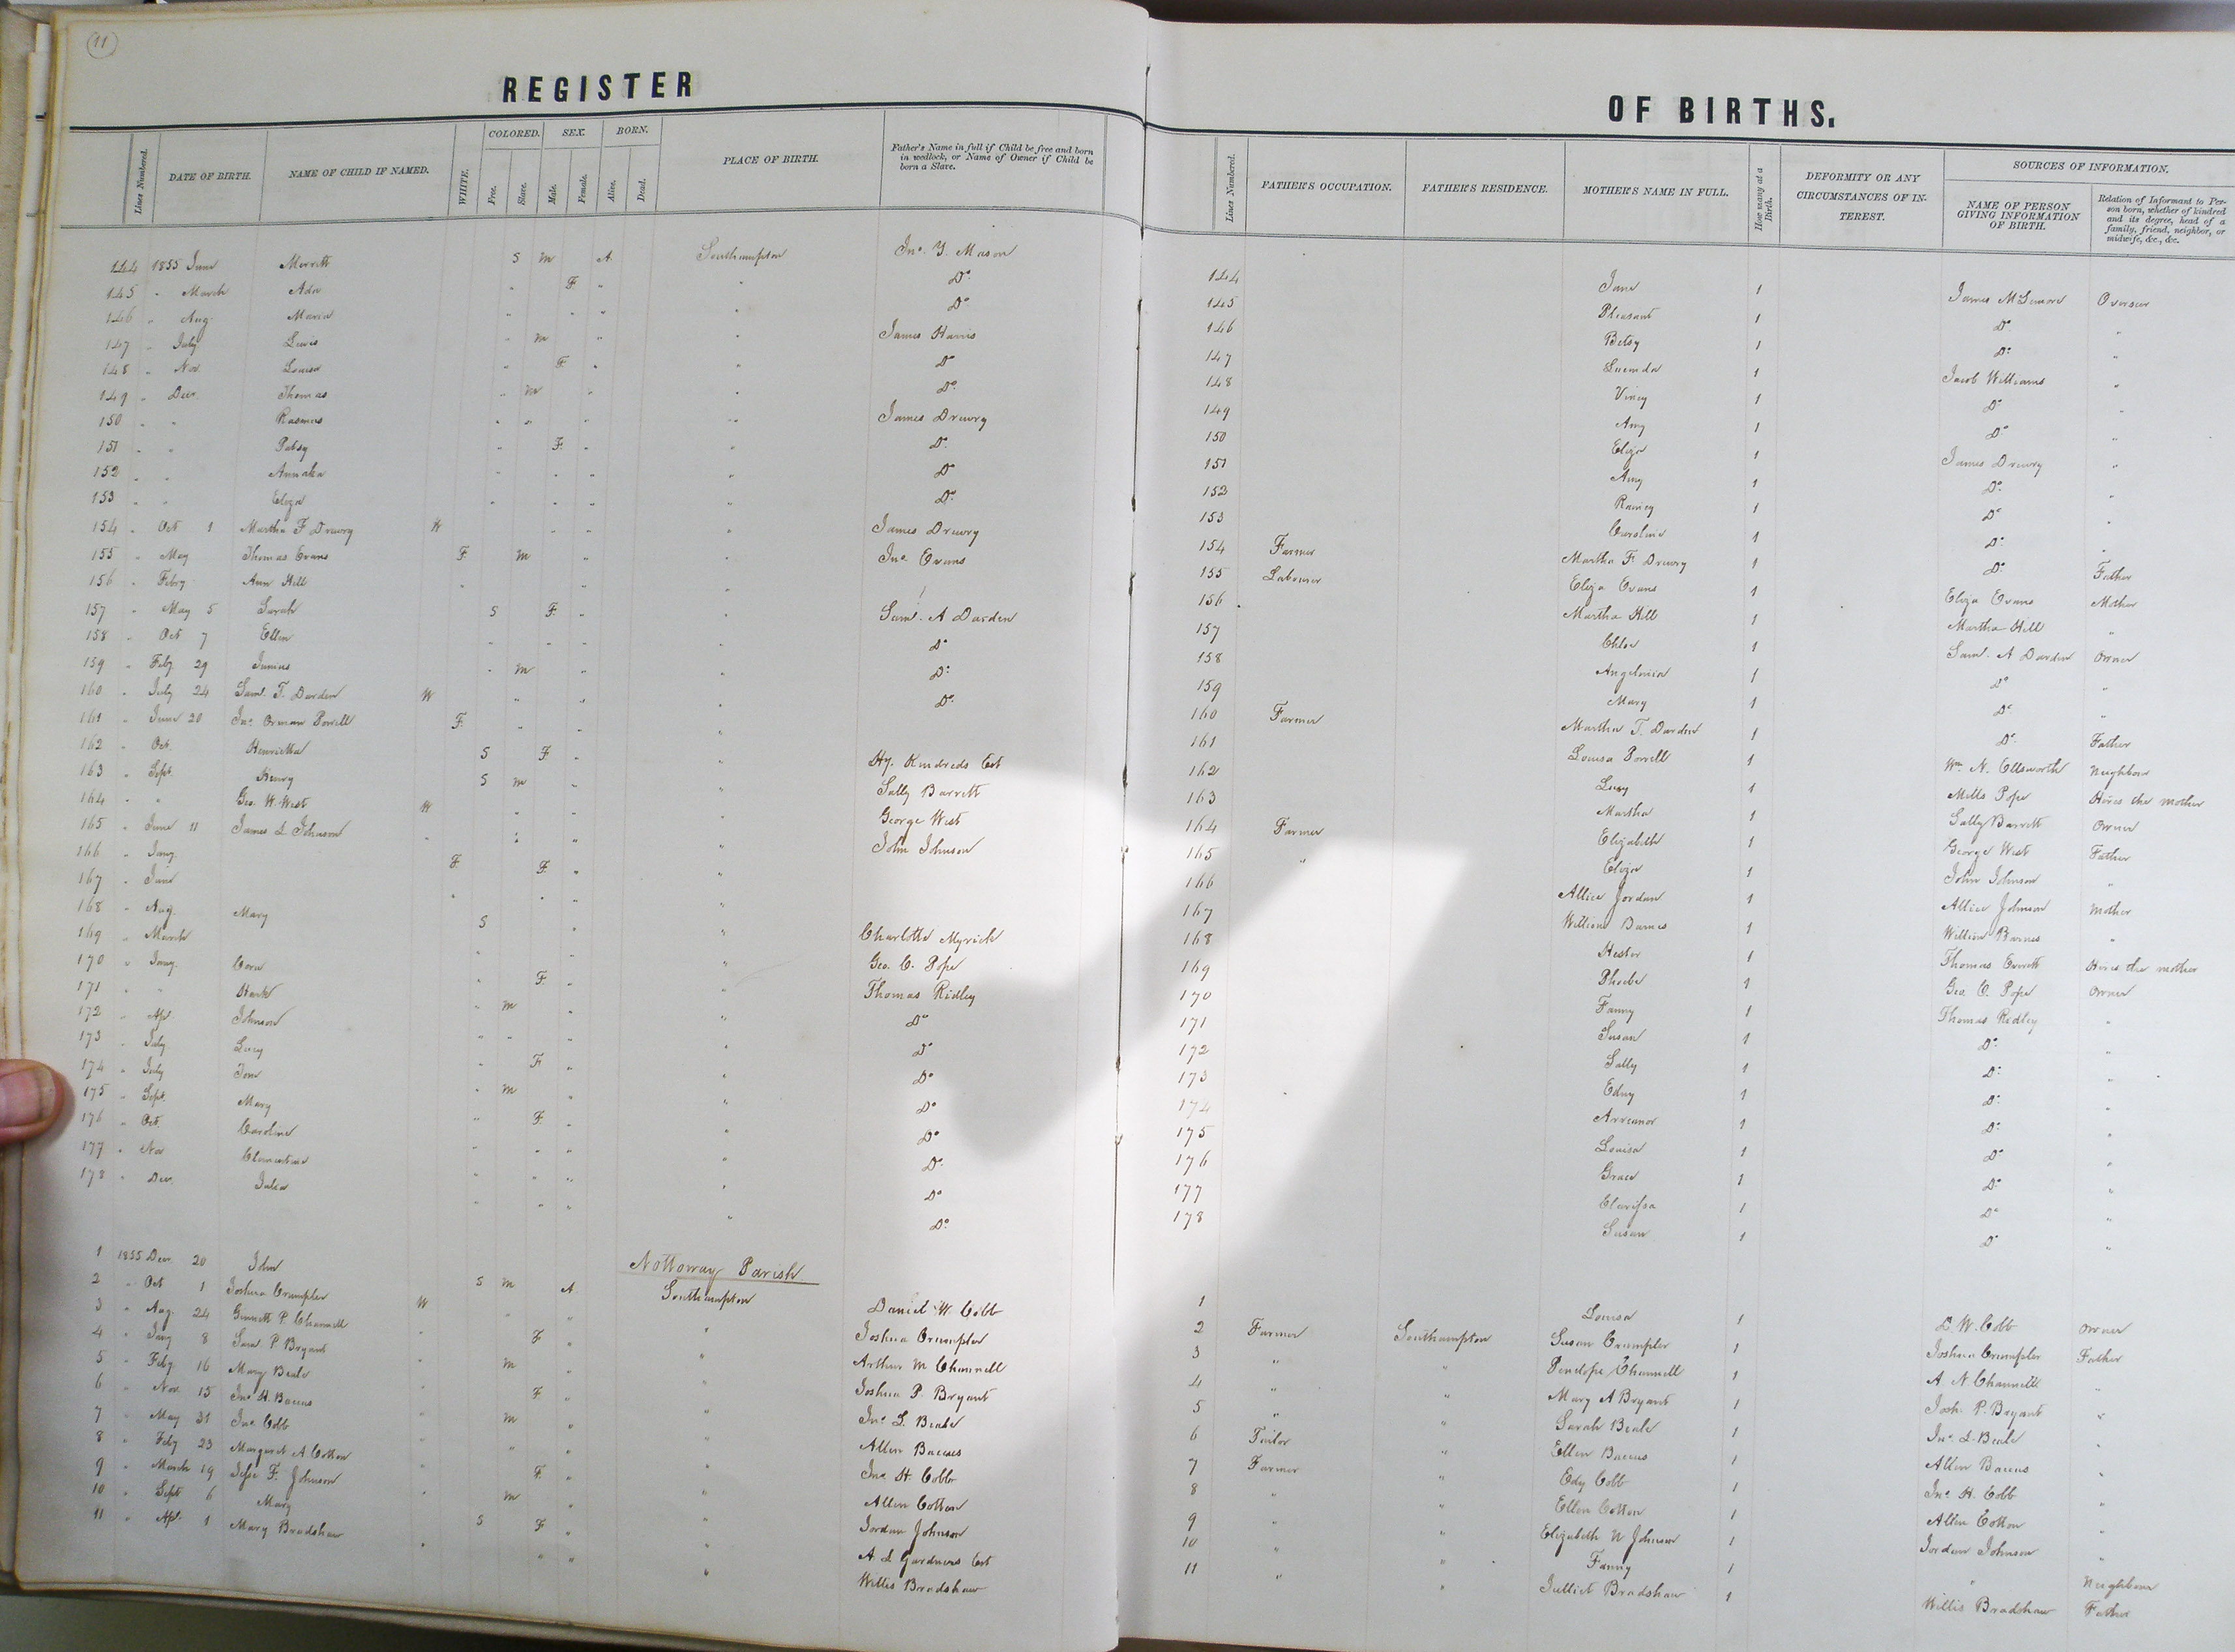 11
REGISTER
OF BIRTHS.
Lines Numbered.
DATE OF BIRTH.
NAME OF CHILD IF NAMED.
WHITE.
COLORED.
Free.
Slave.
SEX.
Male.
Female.
BORN.
Alive.
Dead.
PLACE OF BIRTH.
Father's Name in full if Child be free and born in wedlock, or Name of Owner if Child be born a Slave.
Lines Numbered.
FATHER'S OCCUPATION.
FATHER'S RESIDENCE.
MOTHER'S NAME IN FULL.
How many at a Birth.
DEFORMITY OR ANY CIRCUMSTANCES OF INTEREST.
SOURCES OF INFORMATION.
NAME OF PERSON GIVING INFORMATION OF BIRTH.
Relation of Informant to Person born, whether of kindred and its degree, head of a family, friend, neighbor, or midwife, &c., &c.
144 1855 June Merritt S M A Southampton Jno. Y. Mason 144 Jane 1 James Overseer
145 " March Ada " F " " Do 145 Pleasant 1 Do "
146 " Aug. Maria " " " " Do 146 Betsy 1 Do "
147 " July Lewis " M " " James Harris 147 Lucinda 1 Jacob Williams "
148 " Nov. Louisa " F " " Do 148 Viney 1 Do "
149 " Decr. Thomas " M " " Do 149 Amy 1 Do "
150 " " Rasmus " " " " James Drewry 150 Eliza 1 James Drewry "
151 " " Patsy " F " " Do 151 Amy 1 Do "
152 " " Annaka " " " " Do 152 Raney 1 Do "
153 " " Eliza " " " " Do 153 Caroline 1 Do "
154 " Oct 1 Martha F Drewry W " " " James Drewry 154 Farmer Martha F Drewry 1 Do Father
155 " May Thomas Evans F M " " Jno. Evans 155 Labourer Eliza Evans 1 Eliza Evans Mother
156 " Feby Ann Hill " " " 156 Martha Hill 1 Martha Hill "
157 " May 5 Sarah S F " " Saml. A Darden 157 Chloe 1 Saml. A Darden Owner
158 " Oct 7 Ellen " " " " Do 158 Angelina 1 Do "
159 " Feby 29 Junius " M " " Do 159 Mary 1 Do "
160 " July 24 Saml. T. Darden W " " " Do 160 Farmer Martha T. Darden 1 Do Father
161 " June 20 Jno. Orman Powell F " " " 161 Louisa Powell 1 Wm. N. Ellsworth Neighbour
162 " Oct. Henrietta S F " " Hy. Kindreds Est 162 Lucy 1 Mills Pope Hires the mother
163 " Sept. Henry S M " " Sally Barrett 163 Martha 1 Sally Barrett Owner
164 " " Geo. W. West W " " " George West 164 Farmer Elizabeth 1 George West Father
165 " June 11 James L Johnson " " " " John Johnson 165 " Eliza 1 John Johnson "
166 " Jany. F F " " 166 Allice Jordan 1 Allice Johnson Mother
167 " June " " " " 167 Barnes 1 Barnes "
168 " Aug. Mary S " " Charlotte Myrick 168 Hester 1 Thomas Everett Hires the mother
169 " March " " " Geo. C. Pope 169 Phoebe 1 Geo. C. Pope Owner
170 " Jany. Cora " F " " Thomas Ridley 170 Fanny 1 Thomas Ridley "
171 " " Hark " M " " Do 171 Susan 1 Do "
172 " Ap. Johnson " " " " Do 172 Sally 1 Do "
173 " July Lucy " F " " Do 173 Edny 1 Do "
174 " July Tom " M " " Do 174 Arreanor 1 Do "
175 " Sept. Mary " F " " Do 175 Louisa 1 Do "
176 " Oct. Caroline " " " " Do 176 Grace 1 Do "
177 " Nov Clementine " " " " Do 177 Clarissa 1 Do "
178 " Dec. Julia " " " " Do 178 Susan 1 Do "
Nottoway Parish
1 1855 Dec. 20 John S M A Southampton Daniel W Cobb 1 Louisa 1 D. W. Cobb Owner
2 " Oct 1 Joshua Crumpler W " " " Joshua Crumpler 2 Farmer Southampton Susan Crumpler 1 Joshua Crumpler Father
3 " Aug. 24 P Channell " F " " Arthur M Channell 3 " " Penelope Channell 1 A N. Channell "
4 " Jany 8 Saml. P Bryant " M " " Joshua P. Bryant 4 " " Mary A Bryant 1 Josh. P. Bryant "
5 " Feby 16 Mary Beale " F " " Jno. L. Beale 5 " " Sarah Beale 1 Jno. L. Beale "
6 " Nov. 15 Jno. H. Baccus " M " " Allen Baccus 6 Tailor " Ellen Baccus 1 Allen Baccus "
7 " May 31 Jno. Cobb " " " " Jno H. Cobb 7 Farmer " Edy Cobb 1 Jno. H. Cobb "
8 " Feby 23 Margaret A Cotton " F " " Allen Cotton 8 " " Ellen Cotton 1 Allen Cotton "
9 " March 19 Jesse F. Johnson " M " " Jordan Johnson 9 " " Elizabeth N Johnson 1 Jordan Johnson "
10 " Sept 6 Mary S F " " A. L Gardners Est 10 " " Fanny 1 " Neighbour
11 " Apl. 1 Mary Bradshaw " " " " Willis Bradshaw 11 " " Julliet Bradshaw 1 Willis Bradshaw Father